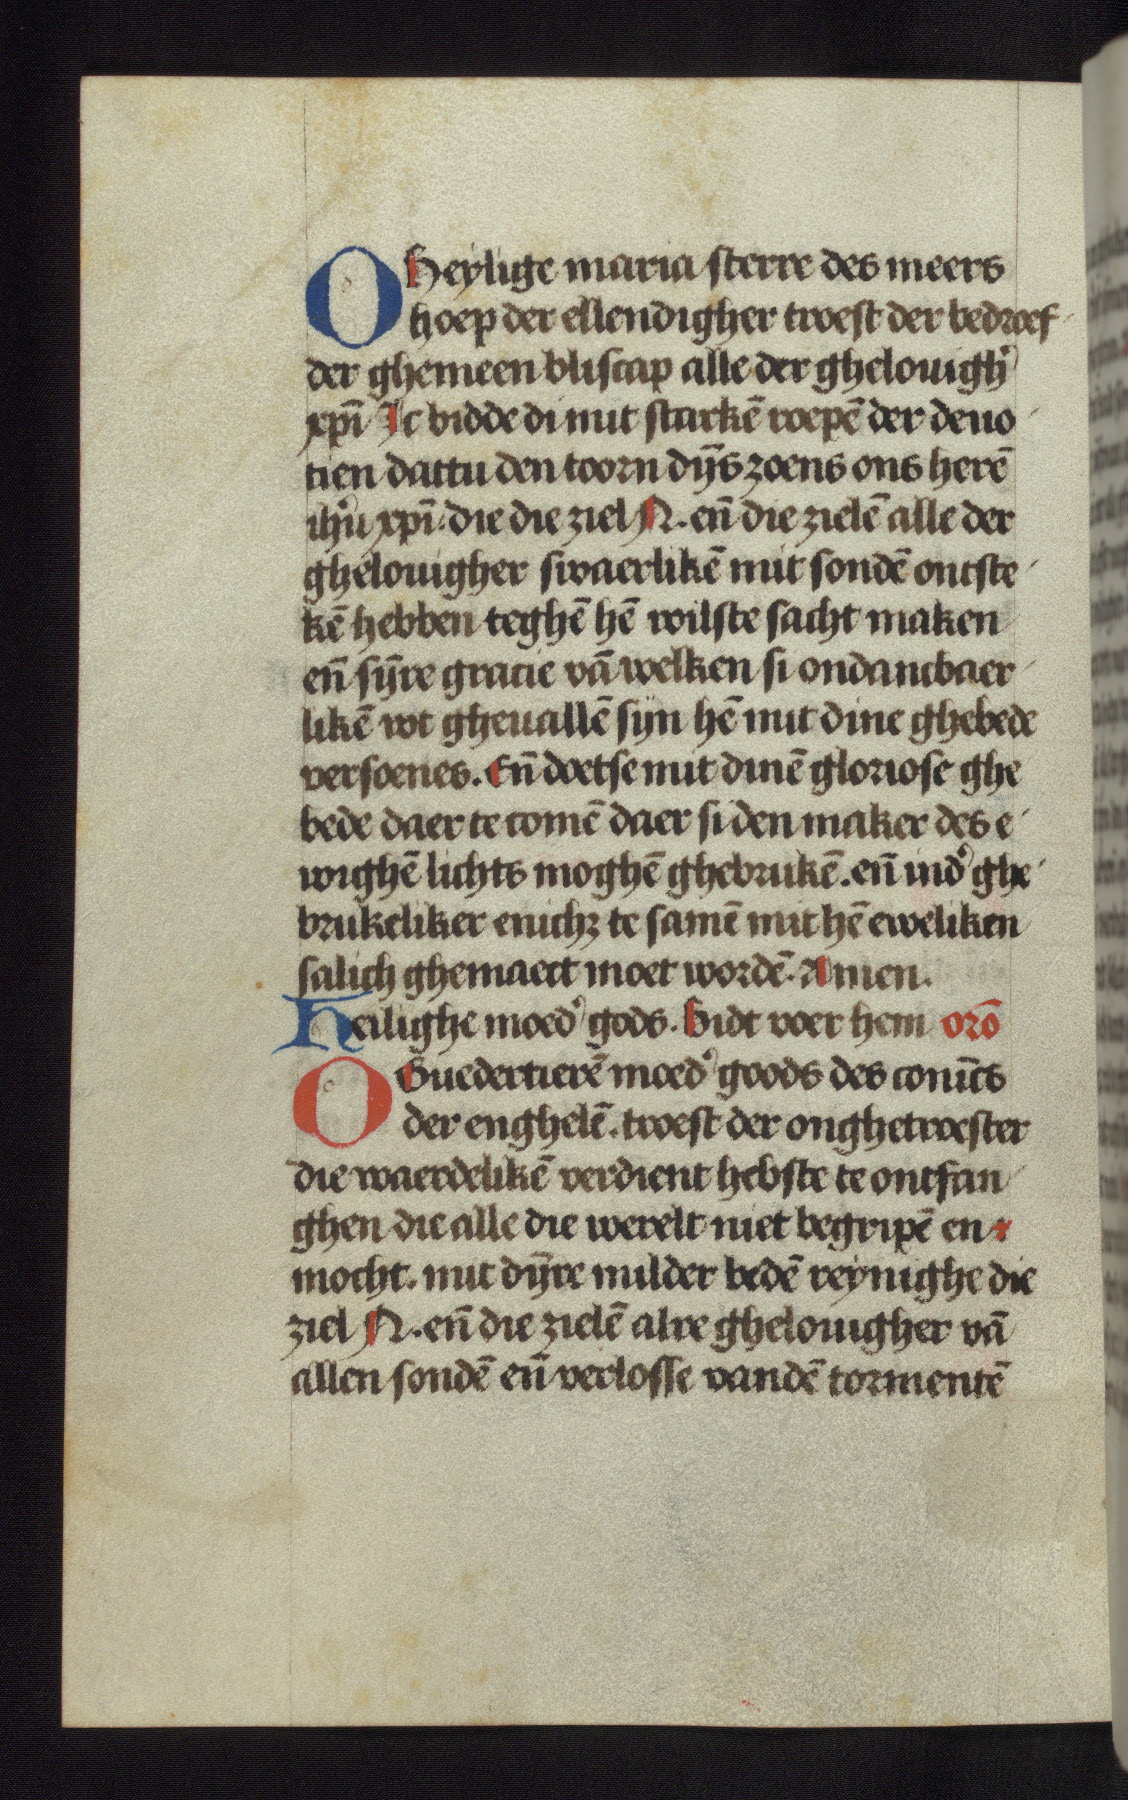 O Heylige maria sterre des meers
hoep der ellendigher troest der bedroef
der ghemeen bliscap alle der ghelouigh᾽
xpī Ic bidde di mit starkē roepē der deuo
tien dattu den toorn dijs zoens ons herē
ihū xpī. die die ziel N. eñ die zielē alle der
ghelouigher swaerlikē mit sondē ontste
kē hebben teghē hē wilste sacht maken
eñ sijre gracie vā welken si ondancbaer
likē wt gheuallē sijn hē mit dine ghebede
versoenes. Eñ doetse mit dinē gloriose ghe
bede daer te comē daer si den maker des e
wighē lichts moghē ghebrukē. eñ in d᾽ ghe
brukeliker enich₃ te samē mit hē eweliken
salich ghemaect moet wordē. Amen.
Heilighe moed᾽ gods. Bidt voer hem orō
O Guedertierē moed᾽ goods des conīcs
der enghelē. troest der onghetroester
die waerdelikē verdient hebste te ontfan
ghen die alle die werelt niet begripē en
mocht. mit dijre milder bedē reynighe die
ziel N. eñ die zielē alre ghelouigher vā
allen sondē eñ verlosse vandē tormentē